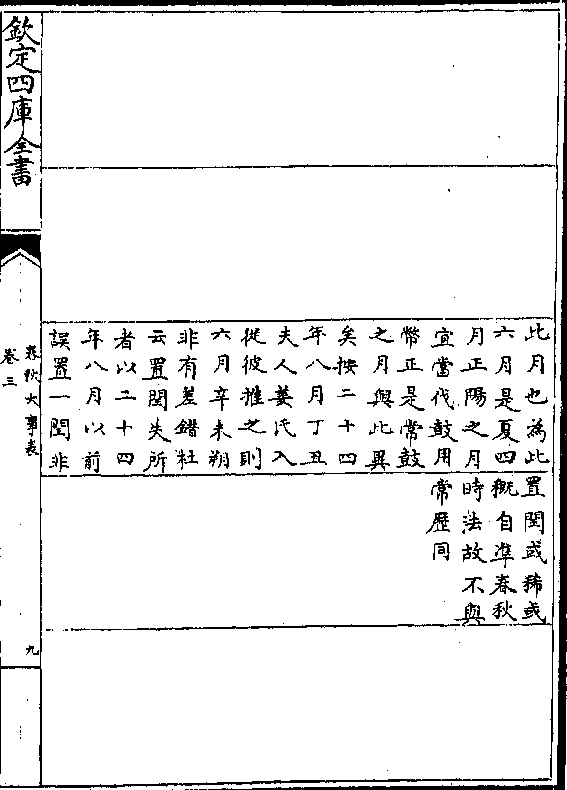 此月也為此
六月是夏四
月正陽之月
宜當代鼓用
幣正是常鼓
之月與此異
矣按二十四
年八月丁丑
夫人姜氏入
從彼推之則
六月辛未朔
非有差錯杜
云置閏失所
者以二十四
年八月以前
誤置一閏非
置閏或稀或
概自準春秋
時法故不與
常歷同
欽定四庫全書
春秋大事表
卷三
九